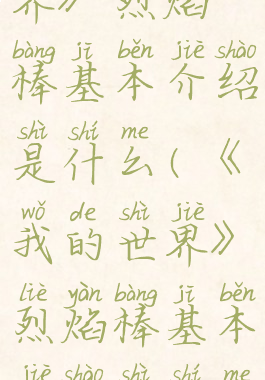 界》烈焰
bàng jī běn jiè shào
棒基本介绍
shì shí me
是什么(《
wǒ de shì jiè
我的世界》
liè yàn bàng jī běn
烈焰棒基本
jiè shào shì shí me